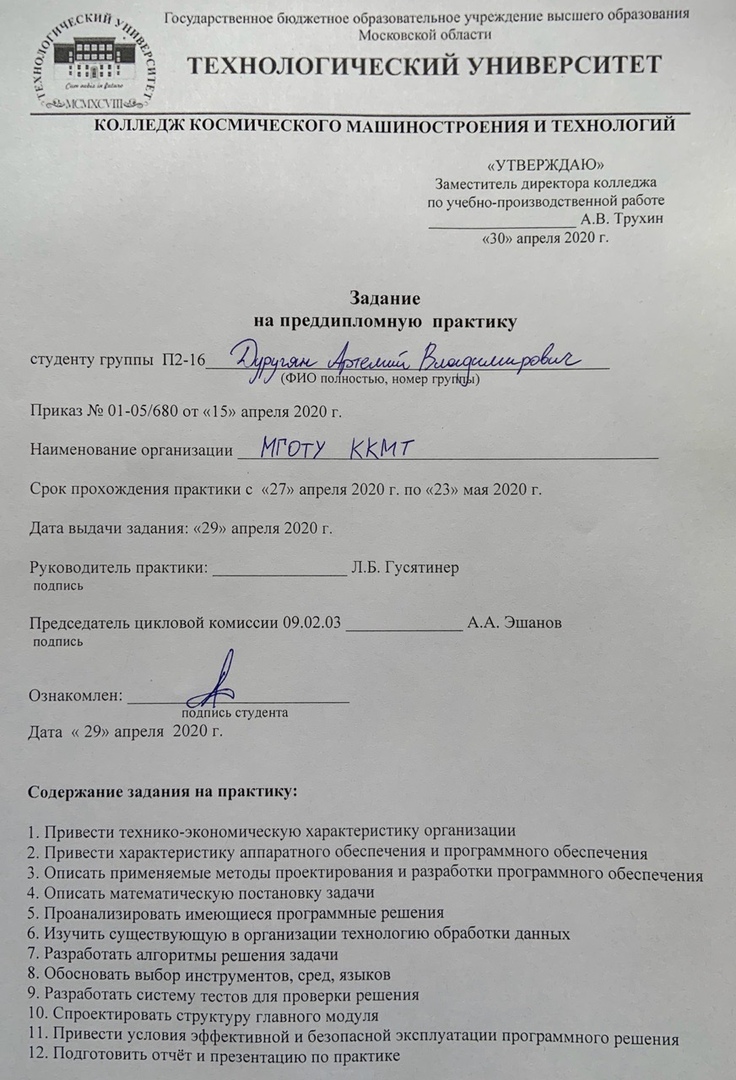 ТЕХНОЛОГИЧЕСКИЙ УНИВЕРСИТЕТ
Cum nobis in futuro
MCMXCVIII
Государственное бюджетное образовательное учреждение высшего образования
Московской области
ТЕХНОЛОГИЧЕСКИЙ УНИВЕРСИТЕТ
КОЛЛЕДЖ КОСМИЧЕСКОГО МАШИНОСТРОЕНИЯ И ТЕХНОЛОГИЙ
«УТВЕРЖДАЮ»
Заместитель директора колледжа
по учебно-производственной работе
__________________ А.В. Трухин
«30» апреля 2020 г.
Задание
на преддипломную практику
студенту группы П2-16 Дуругян Артемий Владимирович
(ФИО полностью, номер группы)
Приказ № 01-05/680 от «15» апреля 2020 г.
Наименование организации МГОТУ ККМТ
Срок прохождения практики с «27» апреля 2020 г. по «23» мая 2020 г.
Дата выдачи задания: «29» апреля 2020 г.
Руководитель практики: ________________ Л.Б. Гусятинер
подпись
Председатель цикловой комиссии 09.02.03 ______________ А.А. Эшанов
подпись
Ознакомлен: __________________________
подпись студента
Дата « 29» апреля 2020 г.
Содержание задания на практику:
1. Привести технико-экономическую характеристику организации
2. Привести характеристику аппаратного обеспечения и программного обеспечения
3. Описать применяемые методы проектирования и разработки программного обеспечения
4. Описать математическую постановку задачи
5. Проанализировать имеющиеся программные решения
6. Изучить существующую в организации технологию обработки данных
7. Разработать алгоритмы решения задачи
8. Обосновать выбор инструментов, сред, языков
9. Разработать систему тестов для проверки решения
10. Спроектировать структуру главного модуля
11. Привести условия эффективной и безопасной эксплуатации программного решения
12. Подготовить отчёт и презентацию по практике